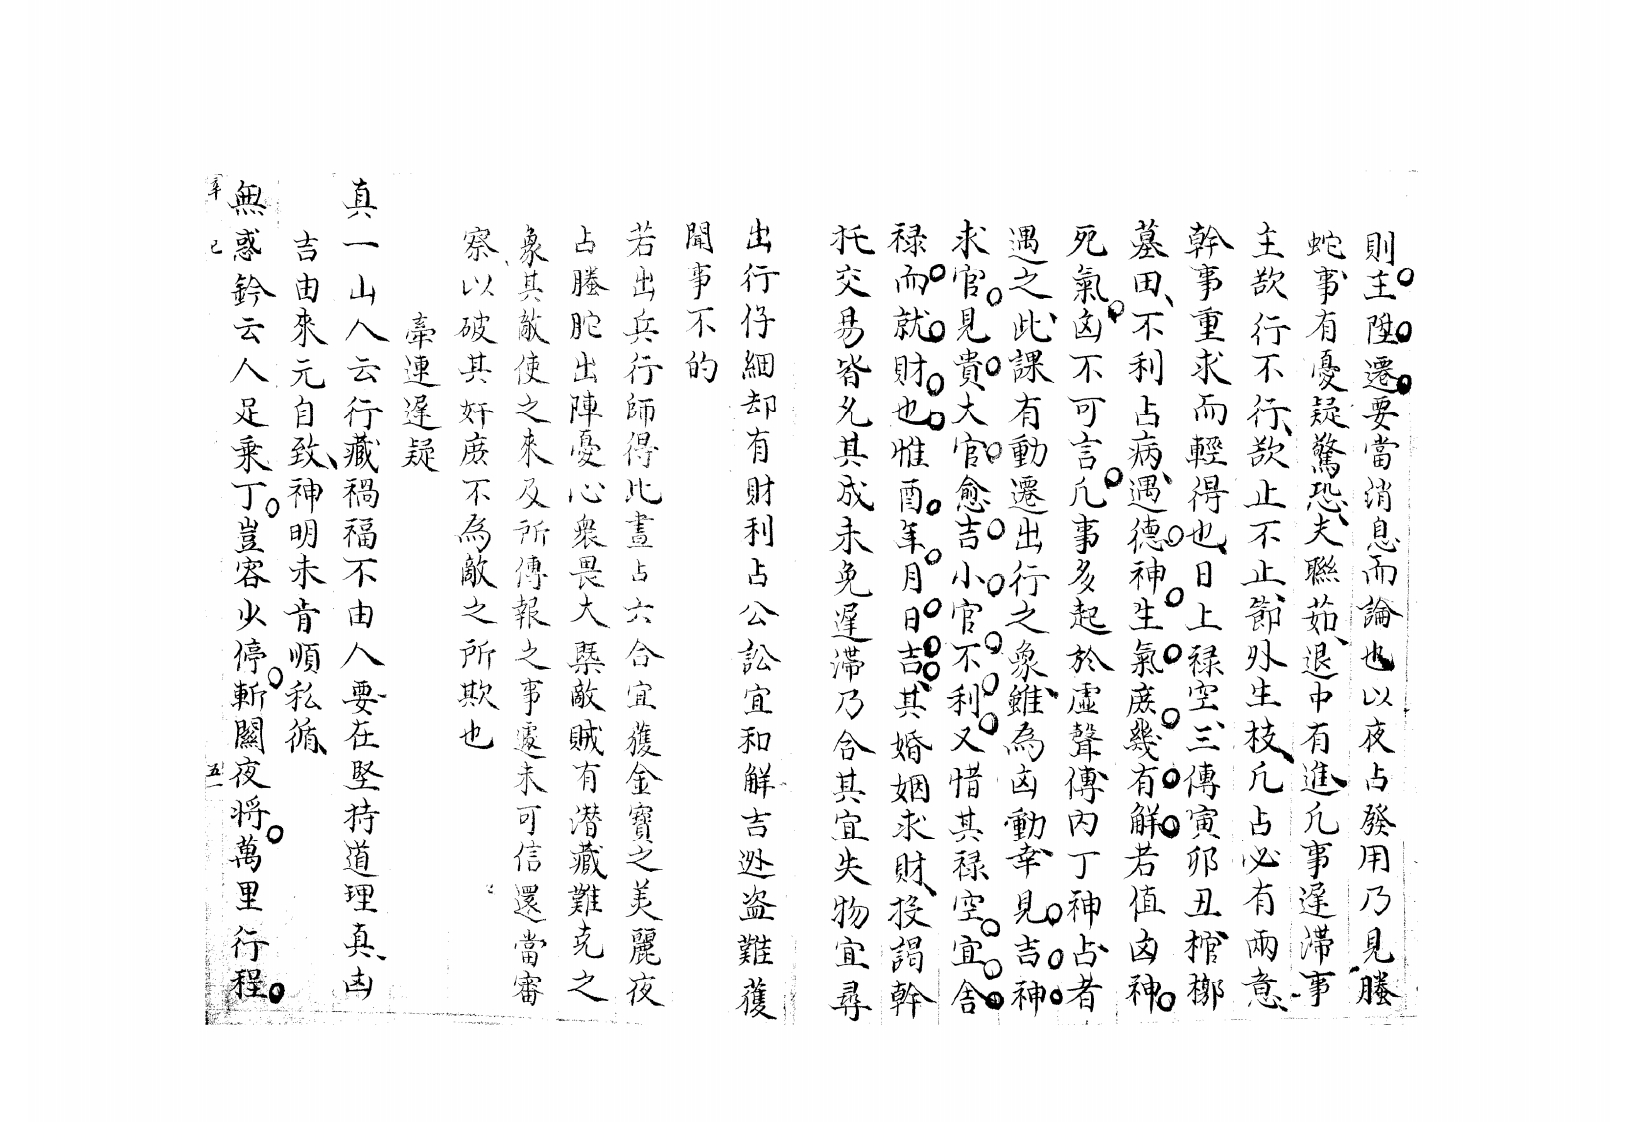 則主陞遷要當消息而論也以夜占發用乃見螣
蛇事有憂疑驚恐夫聯茹退中有進凢事遅滯事
主欲行不行欲止不止節外生枝凢占必有兩意
幹事重求而輕得也日上禄空三傳寅夘丑棺槨
墓田不利占病遇德神生氣庻幾有解若值凶神
死氣凶不可言凢事多起於虛聲傳内丁神占者
遇之此課有動遷出行之象雖為凶動幸見吉神
求官見貴大官愈吉小官不利又惜其禄空宜舍
禄而就財也惟酉年月日吉其婚姻求財投謁幹
托交易皆允其成未免遅滯乃合其宜失物宜尋
出行仔細却有財利占公訟宜和解吉迯盗難獲
聞事不的
若出兵行師得此晝占六合宜獲金寶之美麗夜
占螣蛇出陣憂心衆畏大槩敵賊有潜藏難克之
象其敵使之來及所傳報之事還未可信還當審
察以破其奸庻不為敵之所欺也
牽連遅疑
真一山人云行藏禍福不由人要在堅持道理真凶
吉由來元自致神明未肯順私循
無惑鈐云人足乗丁豈容少停斬關夜将萬里行程
五一